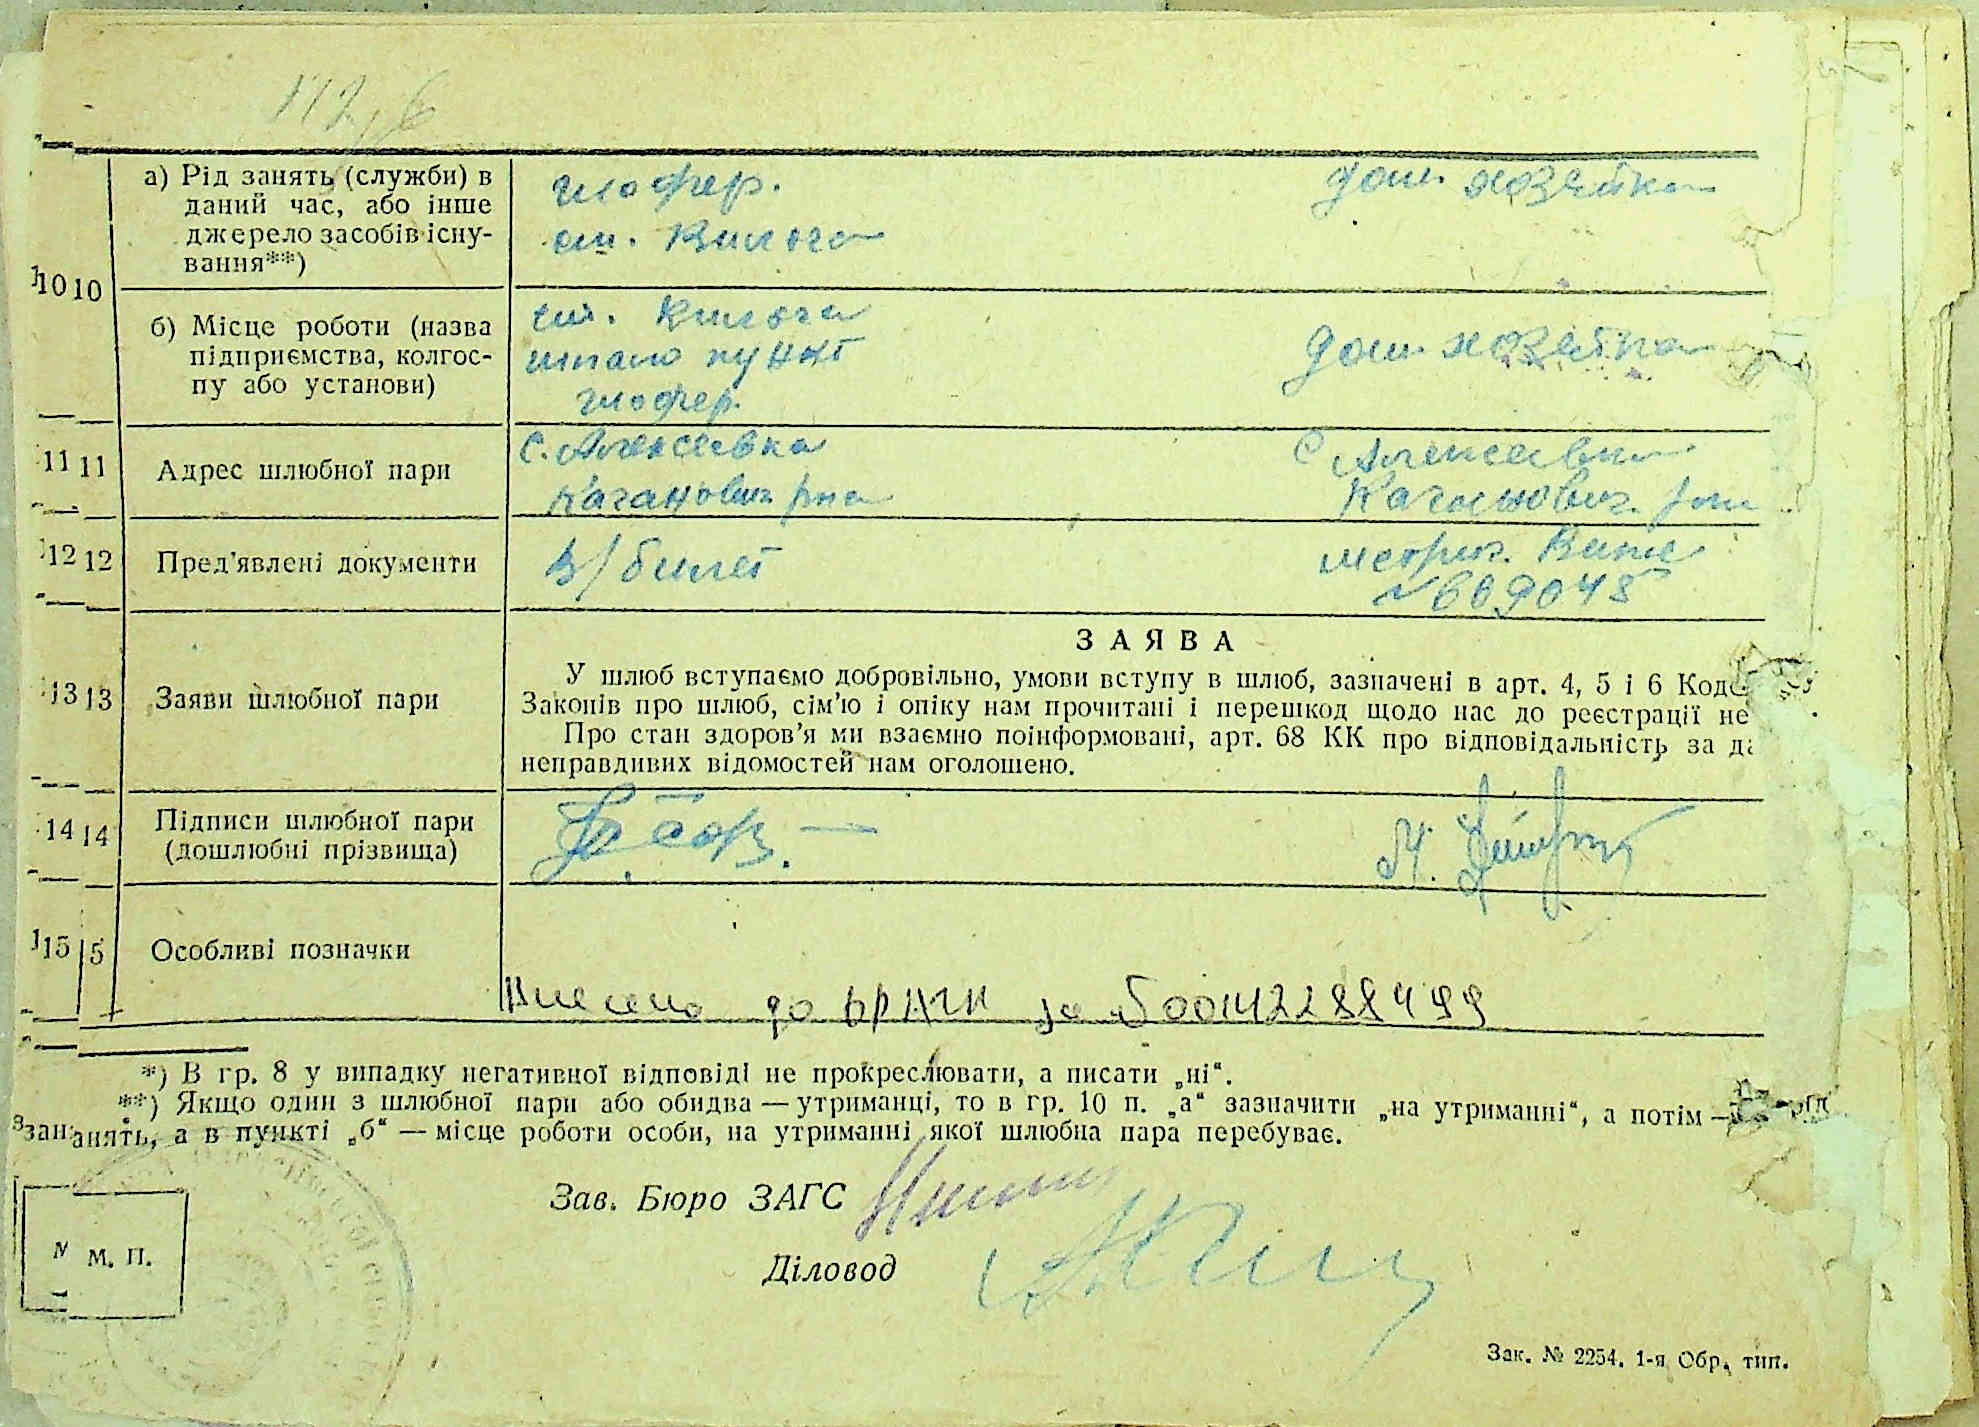 а) Рід занять (служби) в
даний час, або інше
джерело засобів існу-
вання**)
шофер.
ст.
дом. хозяйка
10 10
б) Місце роботи (назва
підприємства, колгос-
пу або установи)
ст.
пункт
шофер.
дом. хозяйка
11 11
Адрес шлюбної пари
с. Алексеевка
Каганович. р-на
с Алексеевка
Каганович. р-на
12 12
Пред'явлені документи
В/билет
метрич.
№ 609048
З А Я В А
13 13
Заяви шлюбної пари
У шлюб вступаємо добровільно, умови вступу в шлюб, зазначені в арт. 4, 5 і 6 Коде
Законів про шлюб, сім'ю і опіку нам прочитані і перешкод щодо нас до реєстрації не
Про стан здоров'я ми взаємно поінформовані, арт. 68 КК про відповідальність за да
неправдивих відомостей нам оголошено.
14 14
Підписи шлюбної пари
(дошлюбні прізвища)
15 15
Особливі позначки
Внесено до ДРАЦС за №00142288499
*) В гр. 8 у випадку негативної відповіді не прокреслювати, а писати „ні“.
**) Якщо один з шлюбної пари або обидва — утриманці, то в гр. 10 п. „а“ зазначити „на утриманні“, а потім —
занять, а в пункті „б“ — місце роботи особи, на утриманні якої шлюбна пара перебуває.
Зав. Бюро ЗАГС
Діловод
М. П.
Зак. № 2254. 1-я Обр. тип.